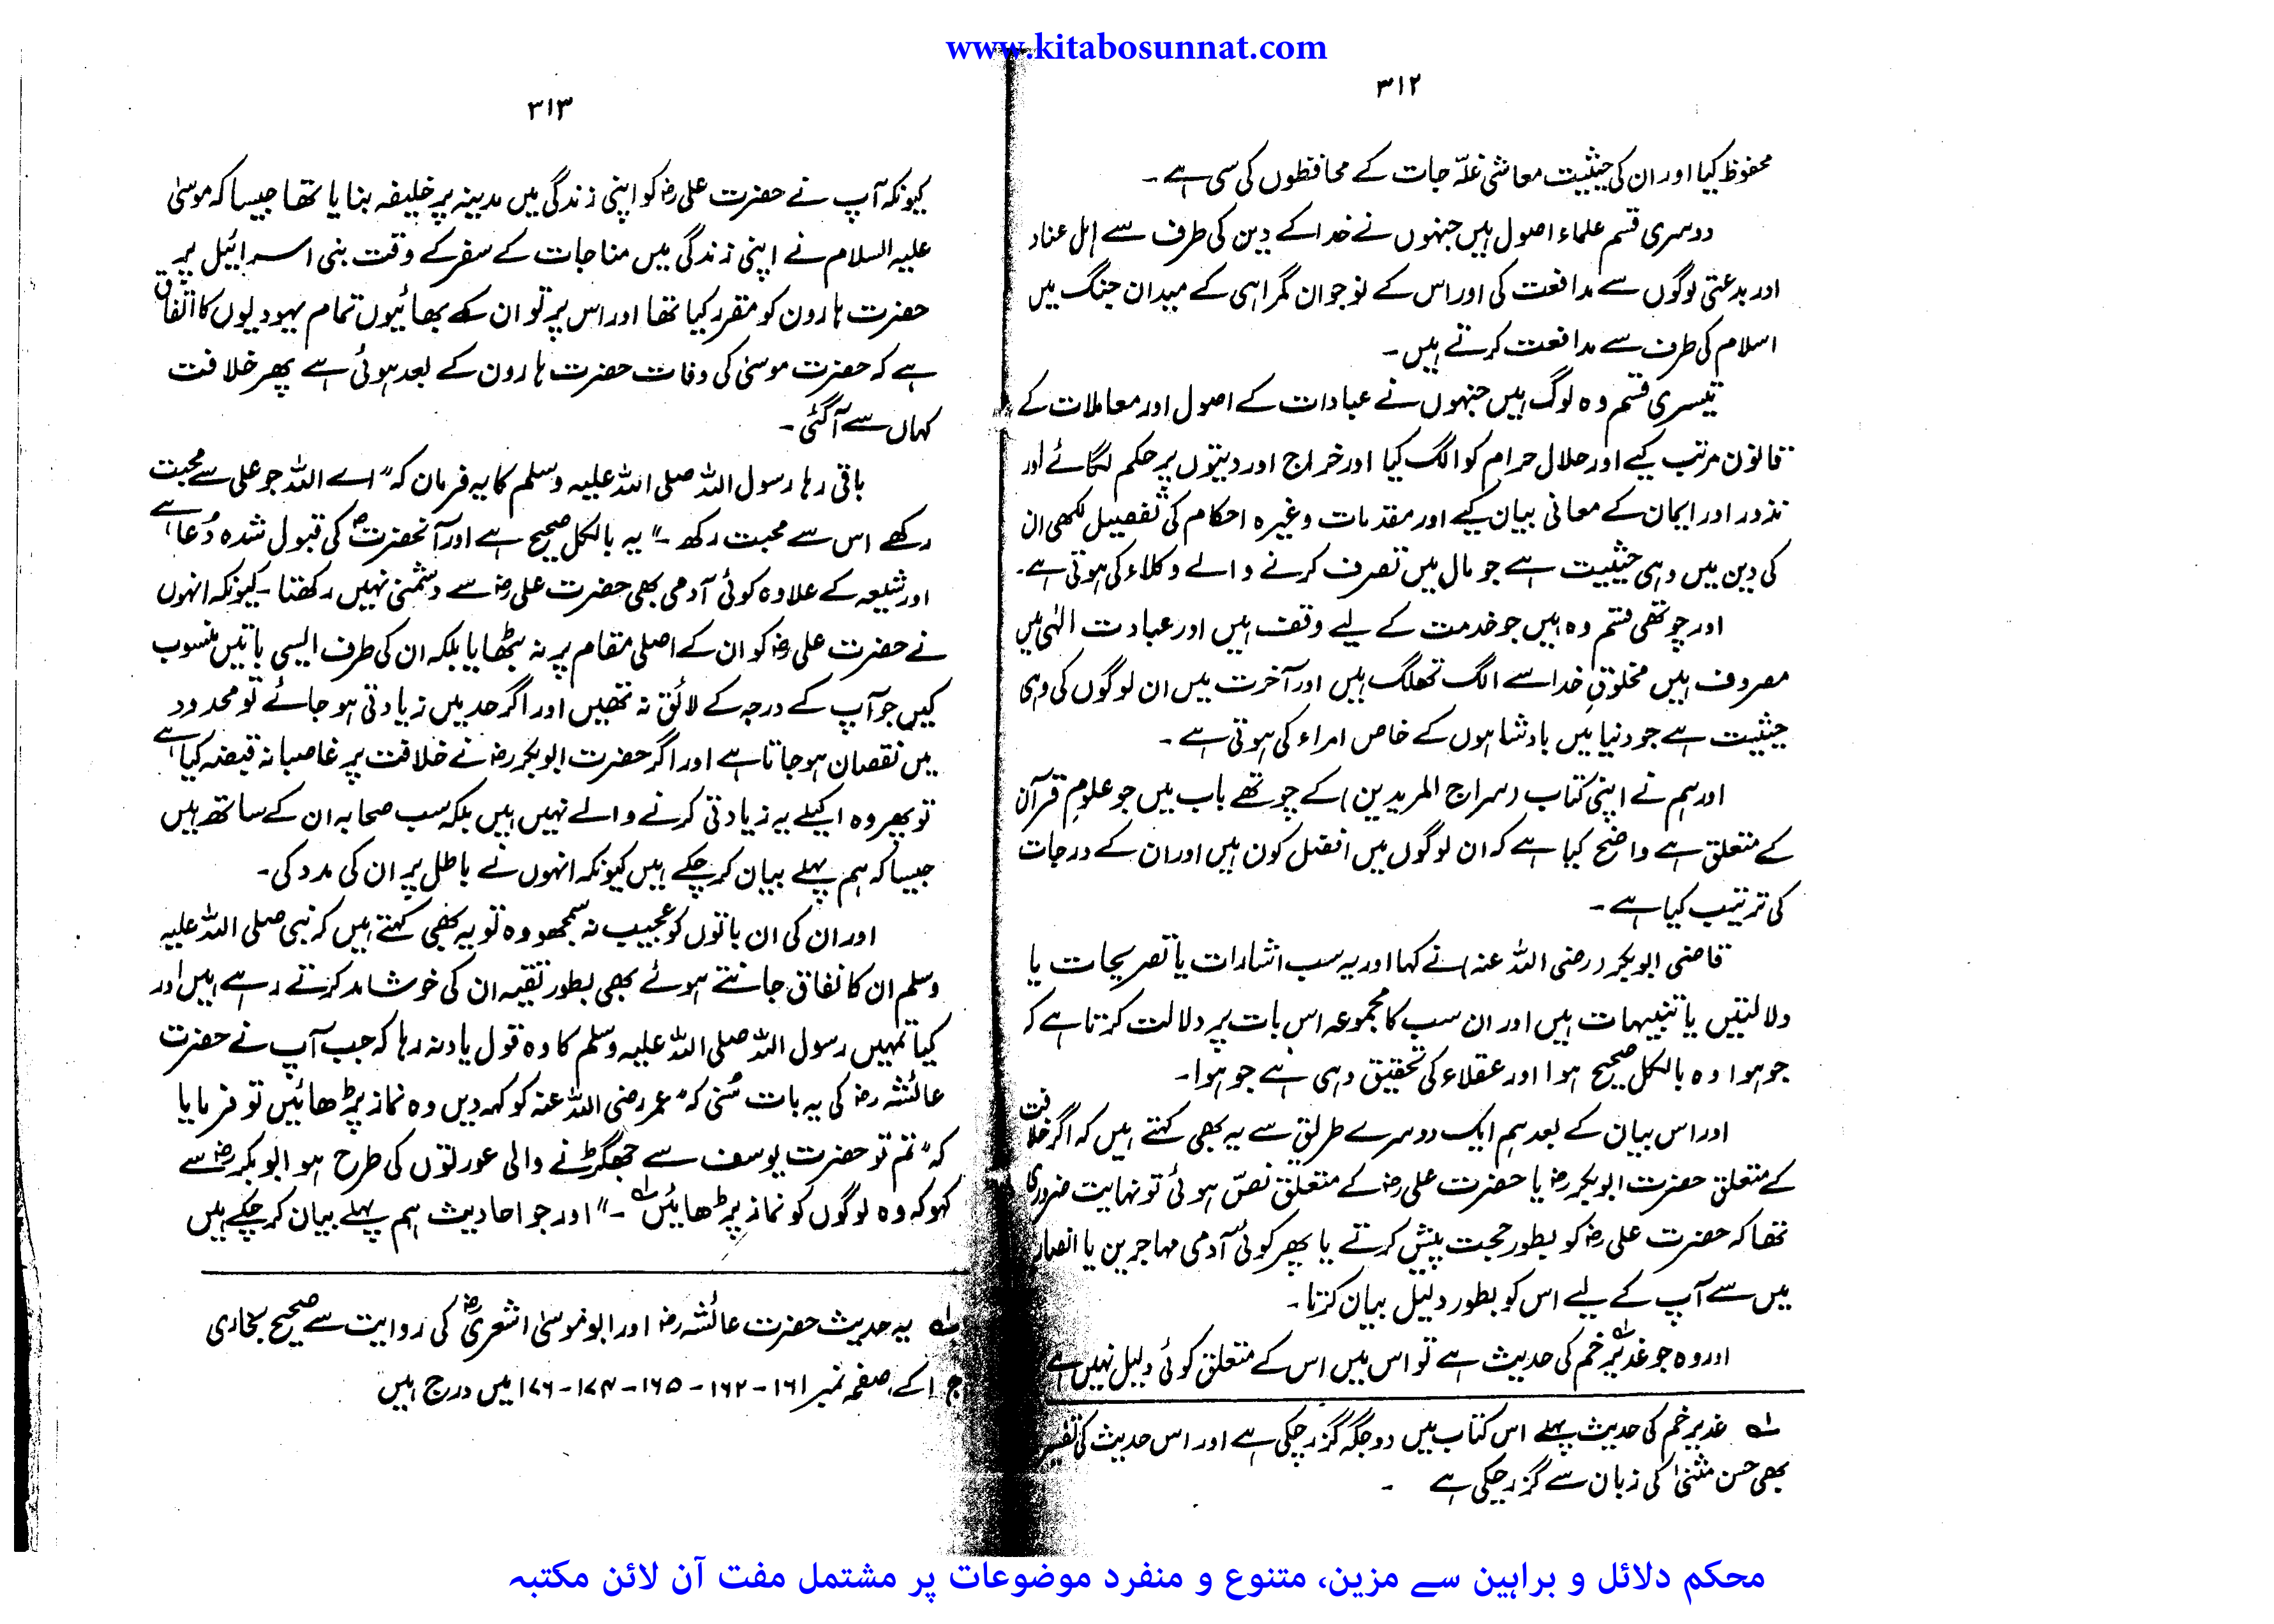 www.kitabosunnat.com
۳۱۲
محفوظ کیا اور ان کی حیثیت معاشی غلّہ جات کے محافظوں کی سی ہے ۔
دوسری قسم علماء اصول ہیں جنہوں نے خدا کے دین کی طرف سے اہل عناد
اور بدعتی لوگوں سے مدافعت کی اور اس کے نوجوان گمراہی کے میدان جنگ میں
اسلام کی طرف سے مدافعت کرتے ہیں ۔
تیسری قسم وہ لوگ ہیں جنہوں نے عبادات کے اصول اور معاملات کے
قانون مرتب کیے اور حلال حرام کو الگ کیا اور خراج اور دیتوں پر حکم لگائے اور
نذور اور ایمان کے معانی بیان کیے اور مقدمات وغیرہ احکام کی تفصیل لکھی ان
کی دین میں وہی حیثیت ہے جو مال میں تصرف کرنے والے وکلاء کی ہوتی ہے ۔
اور چوتھی قسم وہ ہیں جو خدمت کے لیے وقف ہیں اور عبادت الٰہی میں
مصروف ہیں مخلوقِ خدا سے الگ تھلگ ہیں اور آخرت میں ان لوگوں کی وہی
حیثیت ہے جو دنیا میں بادشاہوں کے خاص امراء کی ہوتی ہے ۔
اور ہم نے اپنی کتاب (سراج المریدین) کے چوتھے باب میں جو علومِ قرآن
کے متعلق ہے واضح کیا ہے کہ ان لوگوں میں افضل کون ہیں اور ان کے درجات
کی ترتیب کیا ہے ۔
قاضی ابوبکر (رضی اللہ عنہ) نے کہا اور یہ سب اشارات یا تصریحات یا
دلالتیں یا تنبیہات ہیں اور ان سب کا مجموعہ اس بات پر دلالت کرتا ہے کہ
جو ہوا وہ بالکل صحیح ہوا اور عقلاء کی تحقیق وہی ہے جو ہوا ۔
اور اس بیان کے بعد ہم ایک دوسرے طریق سے یہ بھی کہتے ہیں کہ اگر خلافت
کے متعلق حضرت ابوبکرؓ یا حضرت علیؓ کے متعلق نصّ ہوئی تو نہایت ضروری
تھا کہ حضرت علیؓ کو بطور حجت پیش کرتے یا پھر کوئی آدمی مہاجرین یا انصار
میں سے آپ کے لیے اس کو بطور دلیل بیان کرتا ۔
اور وہ جو غدیرؑ خم کی حدیث ہے تو اس میں اس کے متعلق کوئی دلیل نہیں ہے
لہ غدیر خم کی حدیث پہلے اس کتاب میں دو جگہ گزر چکی ہے اور اس حدیث کی تفسیر
بھی حسن مثنیٰ کی زبان سے گزر چکی ہے ۔
۳۱۳
کیونکہ آپ نے حضرت علیؓ کو اپنی زندگی میں مدینہ پر خلیفہ بنایا تھا جیسا کہ موسیٰ
علیہ السلام نے اپنی زندگی میں مناجات کے سفر کے وقت بنی اسرائیل پر
حضرت ہارون کو مقرر کیا تھا اور اس پر تو ان کے بھائیوں تمام یہودیوں کا اتفاق
ہے کہ حضرت موسیٰ کی وفات حضرت ہارون کے بعد ہوئی ہے پھر خلافت
کہاں سے آ گئی ۔
باقی رہا رسول اللہ صلی اللہ علیہ وسلم کا یہ فرمان کہ "اے اللہ جو علی سے محبت
رکھے اس سے محبت رکھ ۔" یہ بالکل صحیح ہے اور آنحضرتؐ کی قبول شدہ دُعا ہے
اور شیعہ کے علاوہ کوئی آدمی بھی حضرت علیؓ سے دشمنی نہیں رکھتا ۔ کیونکہ انہوں
نے حضرت علیؓ کو ان کے اصلی مقام پر نہ بٹھایا بلکہ ان کی طرف ایسی باتیں منسوب
کیں جو آپ کے درجہ کے لائق نہ تھیں اور اگر حد میں زیادتی ہو جائے تو محدود
میں نقصان ہو جاتا ہے اور اگر حضرت ابوبکرؓ نے خلافت پر غاصبانہ قبضہ کیا ہے
تو پھر وہ اکیلے یہ زیادتی کرنے والے نہیں ہیں بلکہ سب صحابہ ان کے ساتھ ہیں
جیسا کہ ہم پہلے بیان کر چکے ہیں کیونکہ انہوں نے باطل پر ان کی مدد کی ۔
اور ان کی ان باتوں کو عجیب نہ سمجھو وہ تو یہ بھی کہتے ہیں کہ نبی صلی اللہ علیہ
وسلم ان کا نفاق جانتے ہوئے بھی بطور تقیہ ان کی خوشامد کرتے رہے ہیں اور
کیا تمہیں رسول اللہ صلی اللہ علیہ وسلم کا وہ قول یاد نہ رہا کہ جب آپ نے حضرت
عائشہؓ کی یہ بات سُنی کہ "عمر رضی اللہ عنہ کو کہہ دیں وہ نماز پڑھائیں تو فرمایا
کہ "تم تو حضرت یوسف سے جھگڑنے والی عورتوں کی طرح ہو ابوبکرؓ سے
کہو کہ وہ لوگوں کو نماز پڑھائیں لہ ۔" اور جو احادیث ہم پہلے بیان کر چکے ہیں
لہ یہ حدیث حضرت عائشہؓ اور ابو موسیٰ اشعریؓ کی روایت سے صحیح بخاری
ج ۱ کے صفحہ نمبر ۱۶۱ - ۱۶۲ - ۱۶۵ - ۱۷۴ - ۱۷۶ میں درج ہیں
محکم دلائل و براہین سے مزین، متنوع و منفرد موضوعات پر مشتمل مفت آن لائن مکتبہ